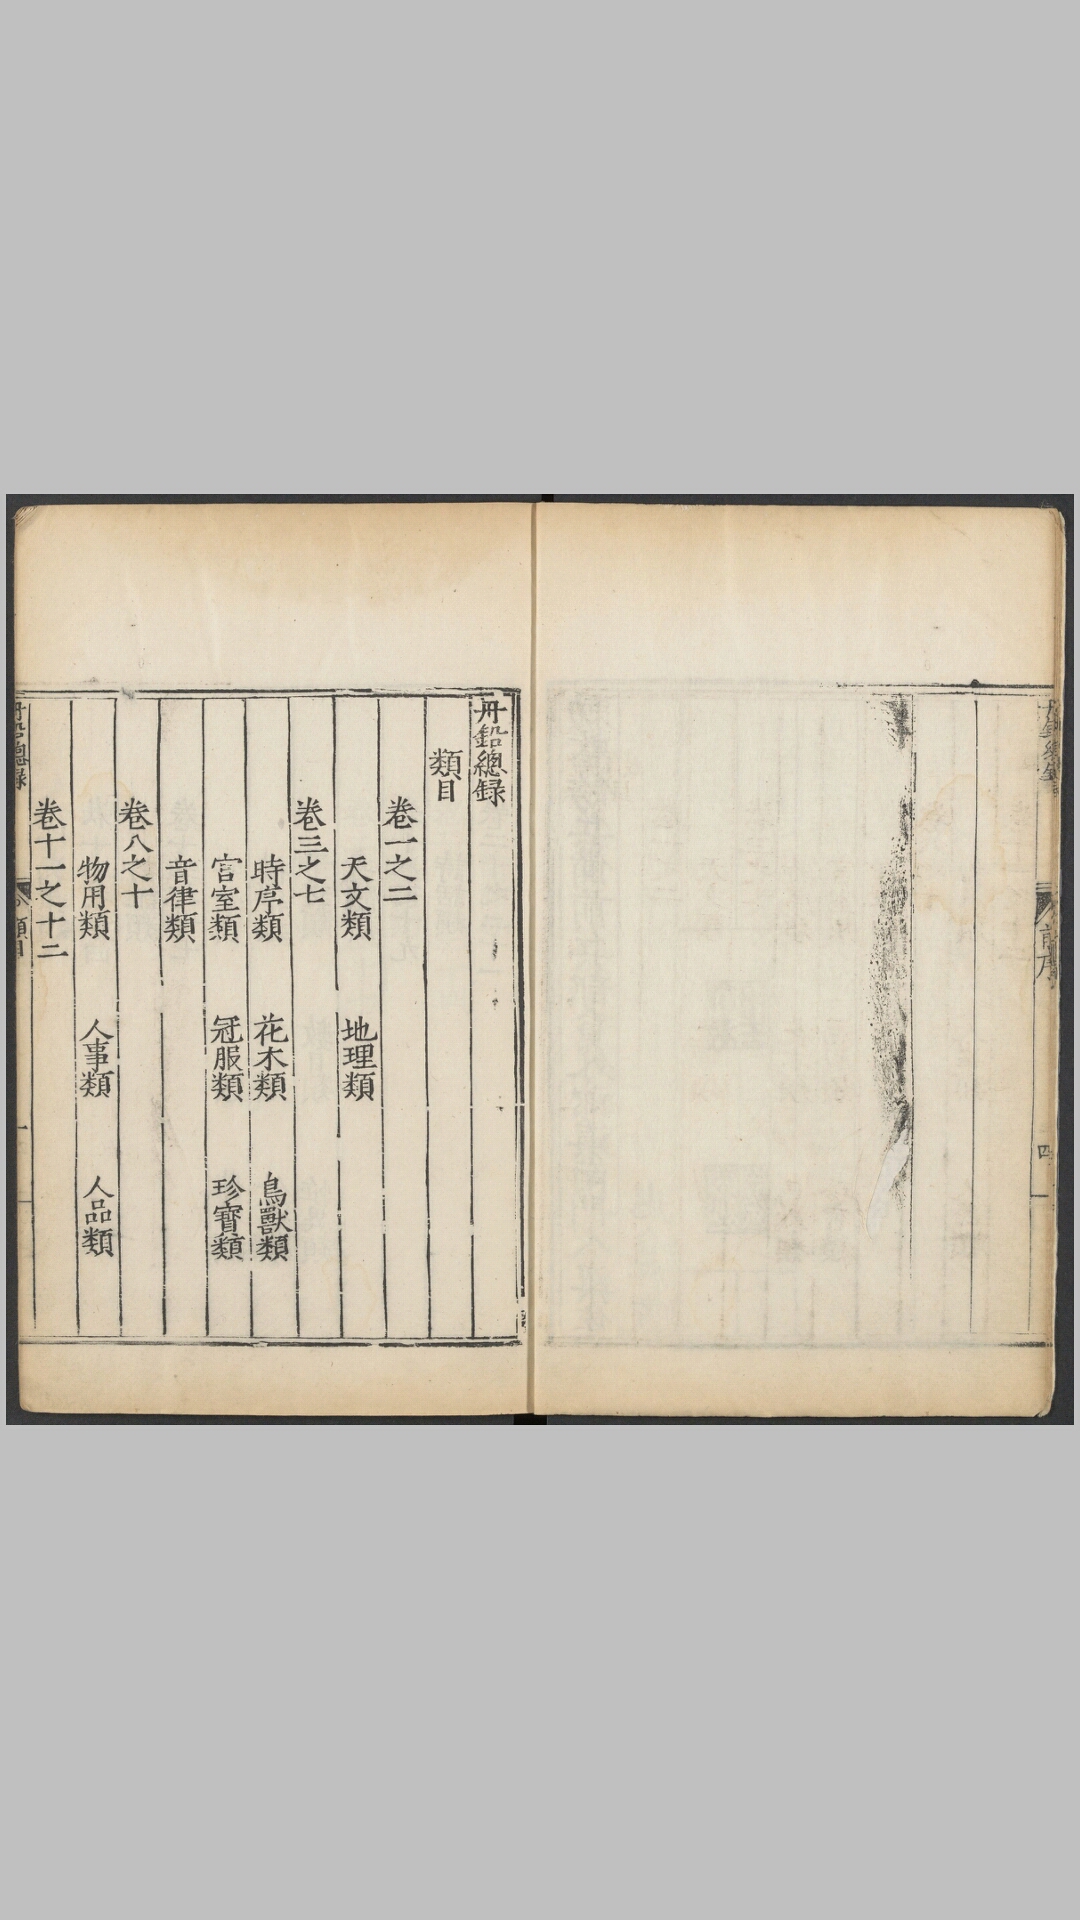 丹鉛總録
前序
四
丹鉛總録
類目
卷一之二
天文類 地理類
卷三之七
時序類 花木類 鳥獸類
宫室類 冠服類 珍寶類
音律類
卷八之十
物用類 人事類 人品類
卷十一之十二
丹鉛總録
類目
一